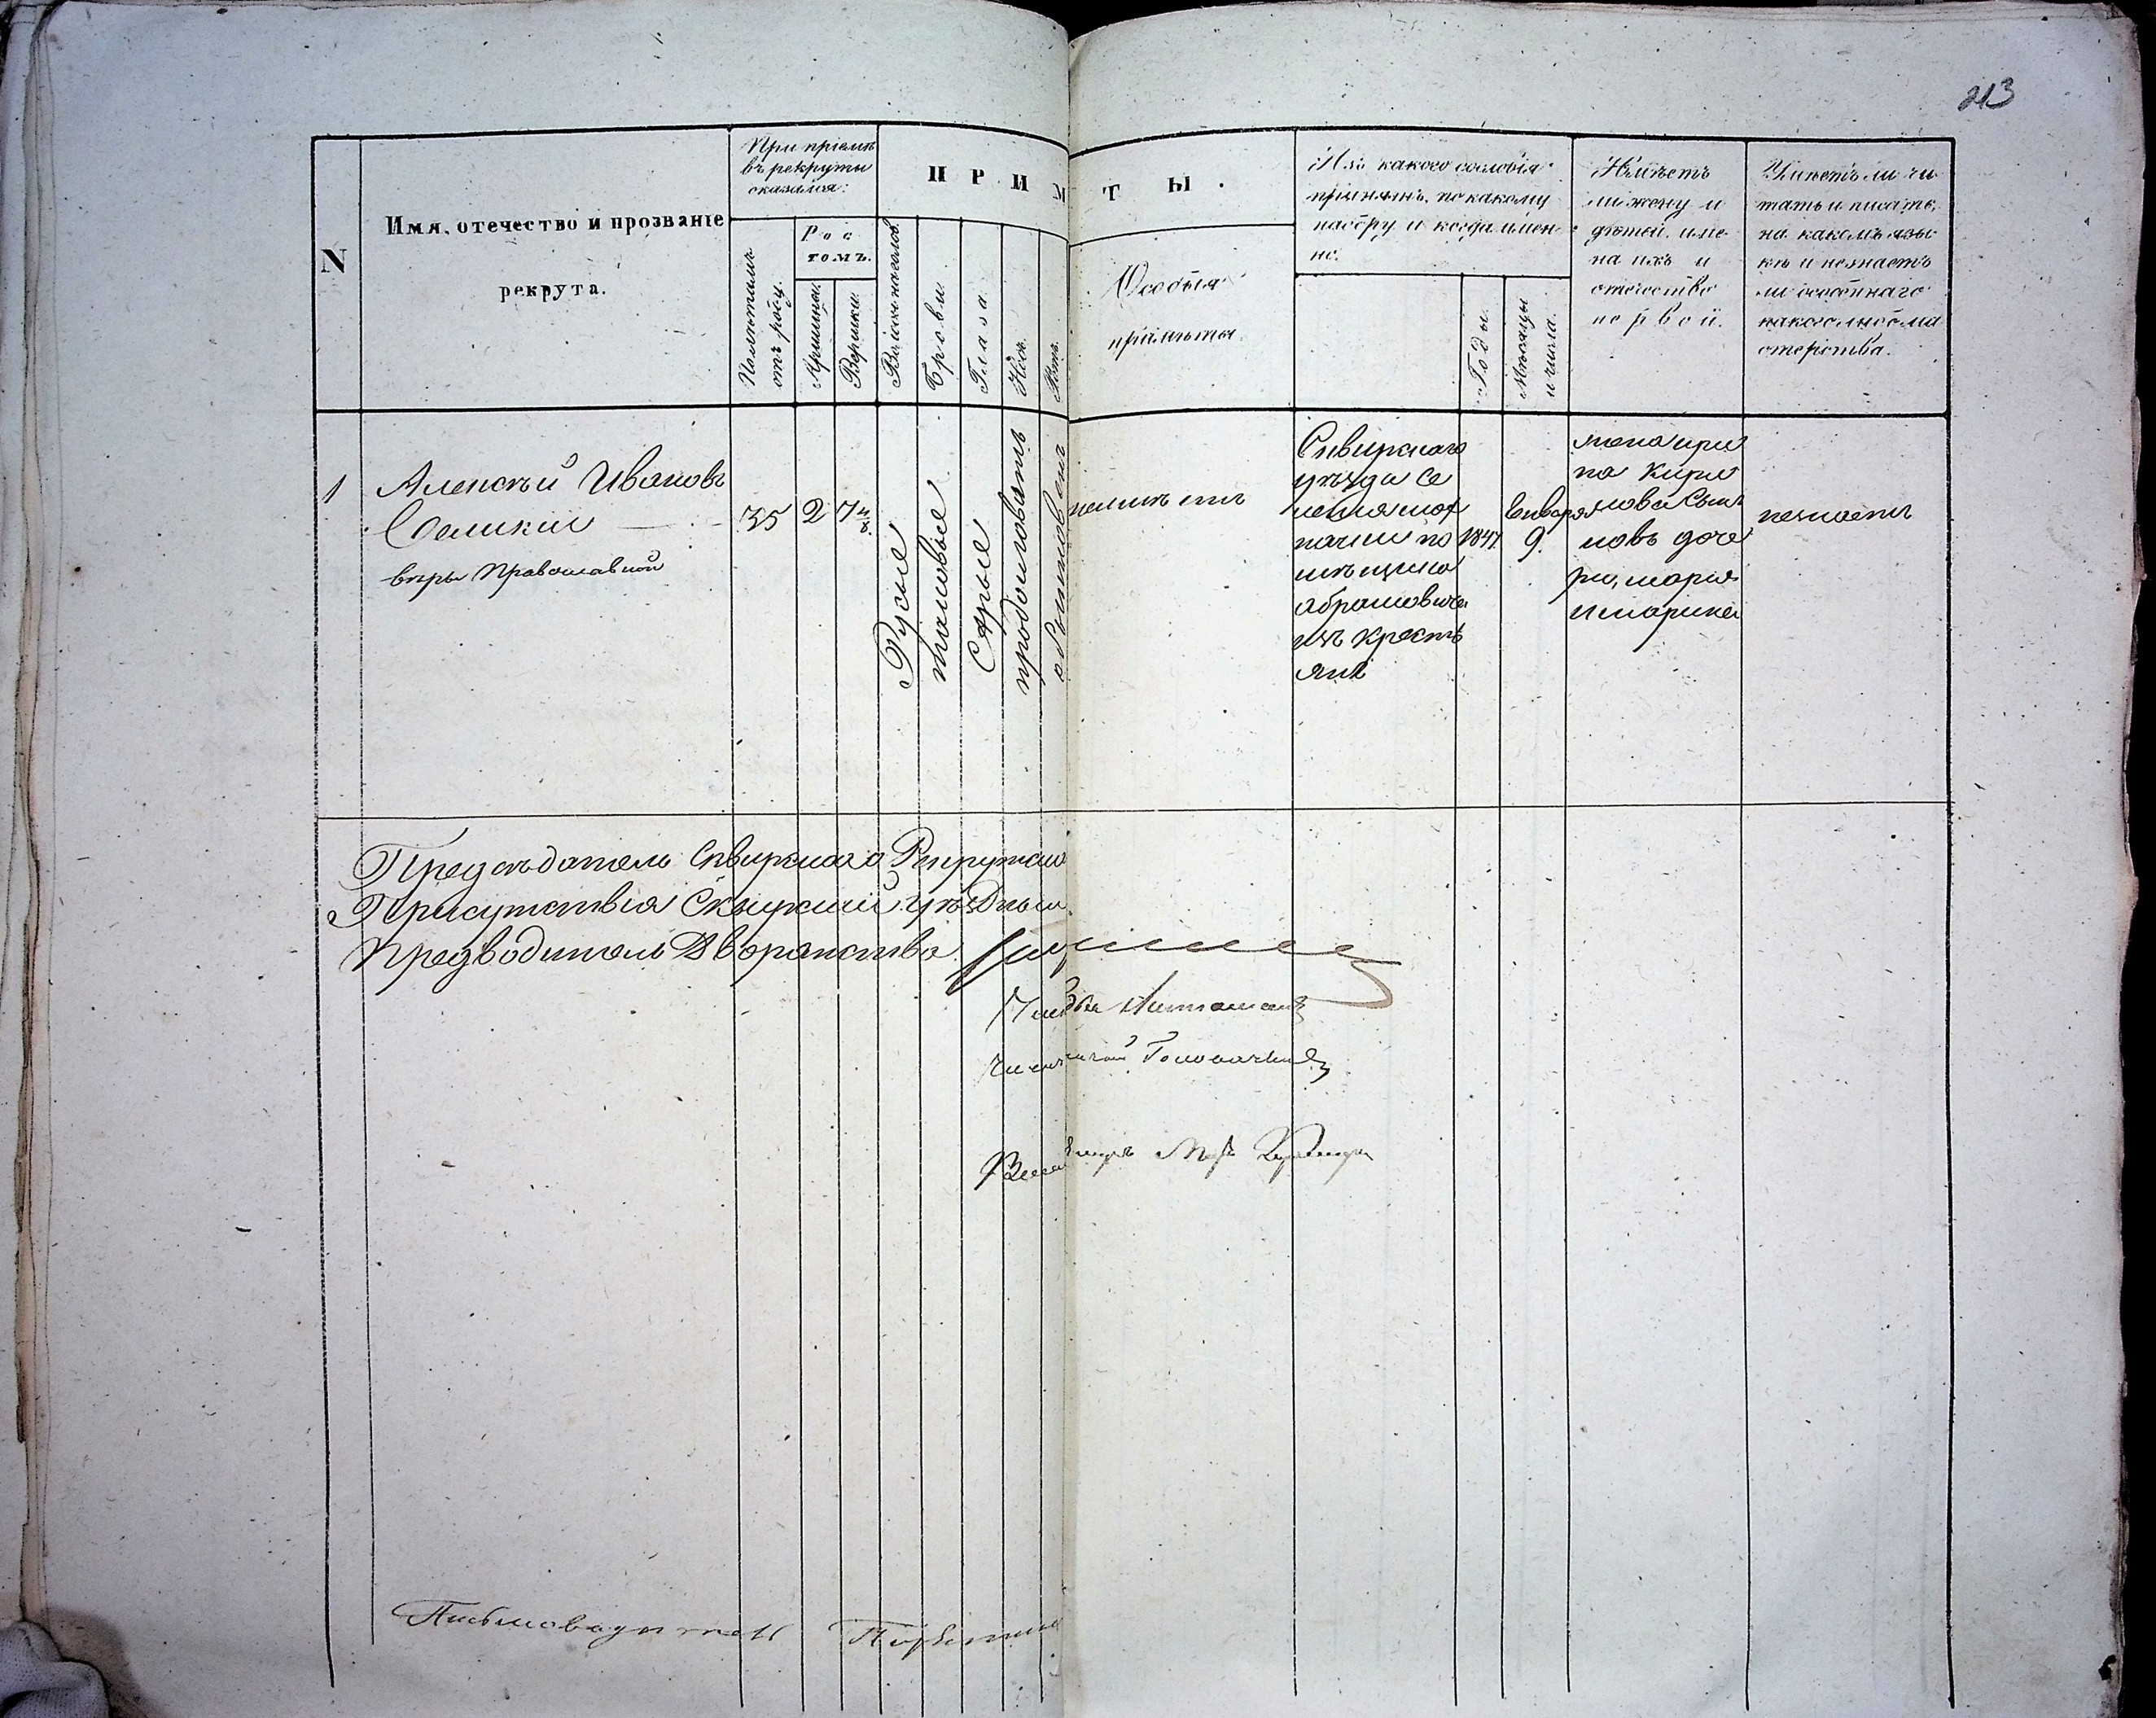 213
N
Имя, отечество и прозваніе
рекрута.
При пріемѣ
въ рекруты
оказался:
Полѣтамъ
отъ роду.
Рос
томъ.
Аршины.
Вершки.
Волосы на головѣ.
ПРИМѢТЫ.
Брови.
Глаза.
Носъ.
Ротъ.
Особыя
примѣты.
Изъ какого сословія
принятъ, по какому
набору и когда имен
но.
Годы.
Мѣсяцы
и числа.
Имѣетъ
ли жену и
дѣтей, име
на ихъ и
отчество
первой.
Умѣетъ ли чи
тать и писать,
на какомъ язы
кѣ и не знаетъ
ли особеннаго
какого либо ма
стерства.
1
Алексѣй Ивановъ
Великій
вѣры Православной
35
2
7 4/8
Русые
таковые
Сѣрые
продолговатъ
обыкновенъ
неимѣетъ
Сквирскаго
уѣзда Се
ленія
по
мѣщика
Абрамовича
изъ кресть
янъ
1847
Енваря
9.
жена Ири
на Кири
лова Сын
овъ доче
ри, Марія
и Марина
незнаетъ
Предсѣдатель Сквирскаго Рекрутскаго
Присутствія Сквирскій уѣздный
Предводитель Дворянства
Письмоводитель